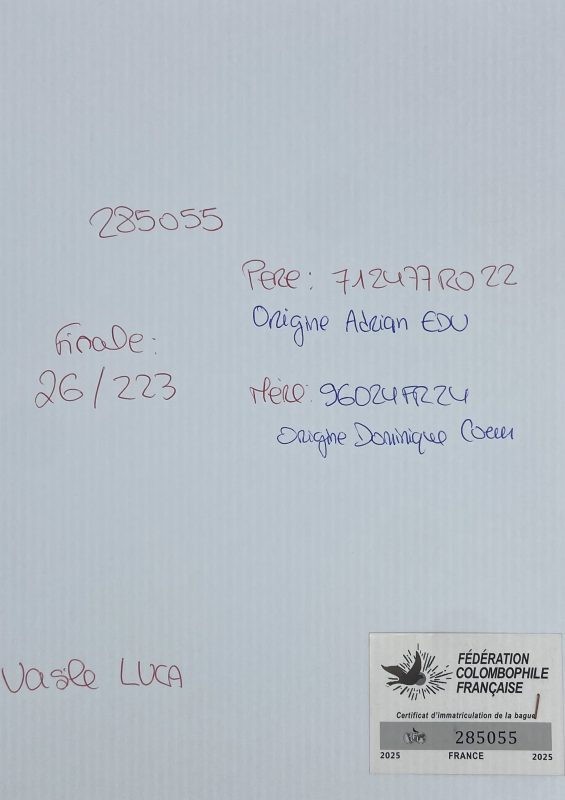 285055
Père: 712477RO22
Origine Adrian EDU
Finale:
26/223
Mère: 96024FR24
Origine Dominique Coeur
Vasile LUCA
FÉDÉRATION
COLOMBOPHILE
FRANÇAISE
Certificat d'immatriculation de la bague
285055
2025 FRANCE 2025